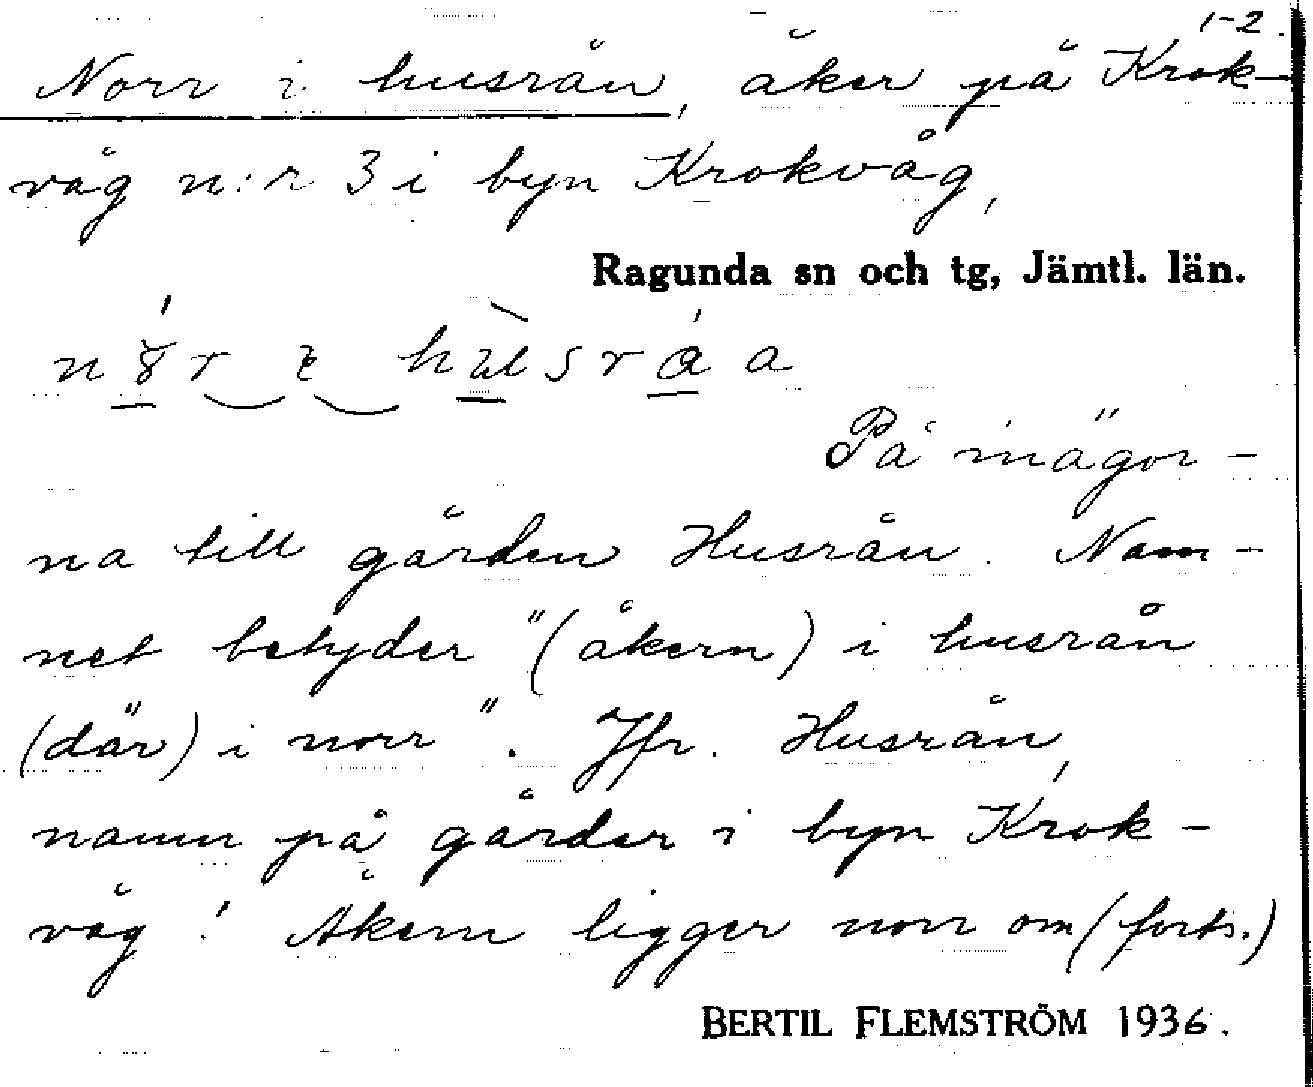 1-2.
Norr i husrån, åker på Krok-
våg n:r 3 i byn Krokvåg,
Ragunda sn och tg, Jämtl. län.
På inägor-
na till gården Husrån. Nam-
net betyder "(åkern) i husrån
(där) i norr". Jfr. Husrån,
namn på gårdar i byn Krok-
våg! Åkern ligger norr om (forts.)
BERTIL FLEMSTRÖM 1936.